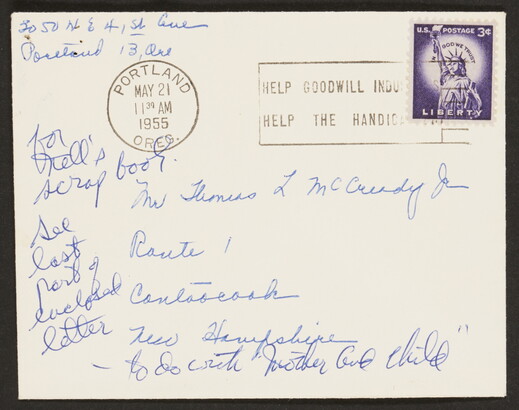 7050 N E 41, st Ave
Portland 13, Ore
PORTLAND
MAY 21
11 30 AM
1955
OREG.
HELP GOODWILL INDU
HELP THE HANDIC
U.S. POSTAGE 3¢
IN GOD WE TRUST
LIBERTY
for
Nell's
scrap book.
Mr Thomas L McCready Jr
see
last
part of
enclosed
letter
Route 1
Contoocook
New Hampshire
— to do with "Mother and Child"